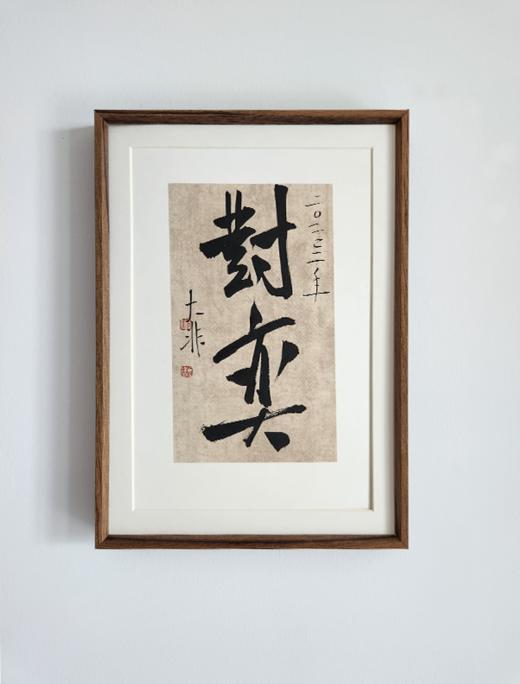 二〇二三年
對奕
大非